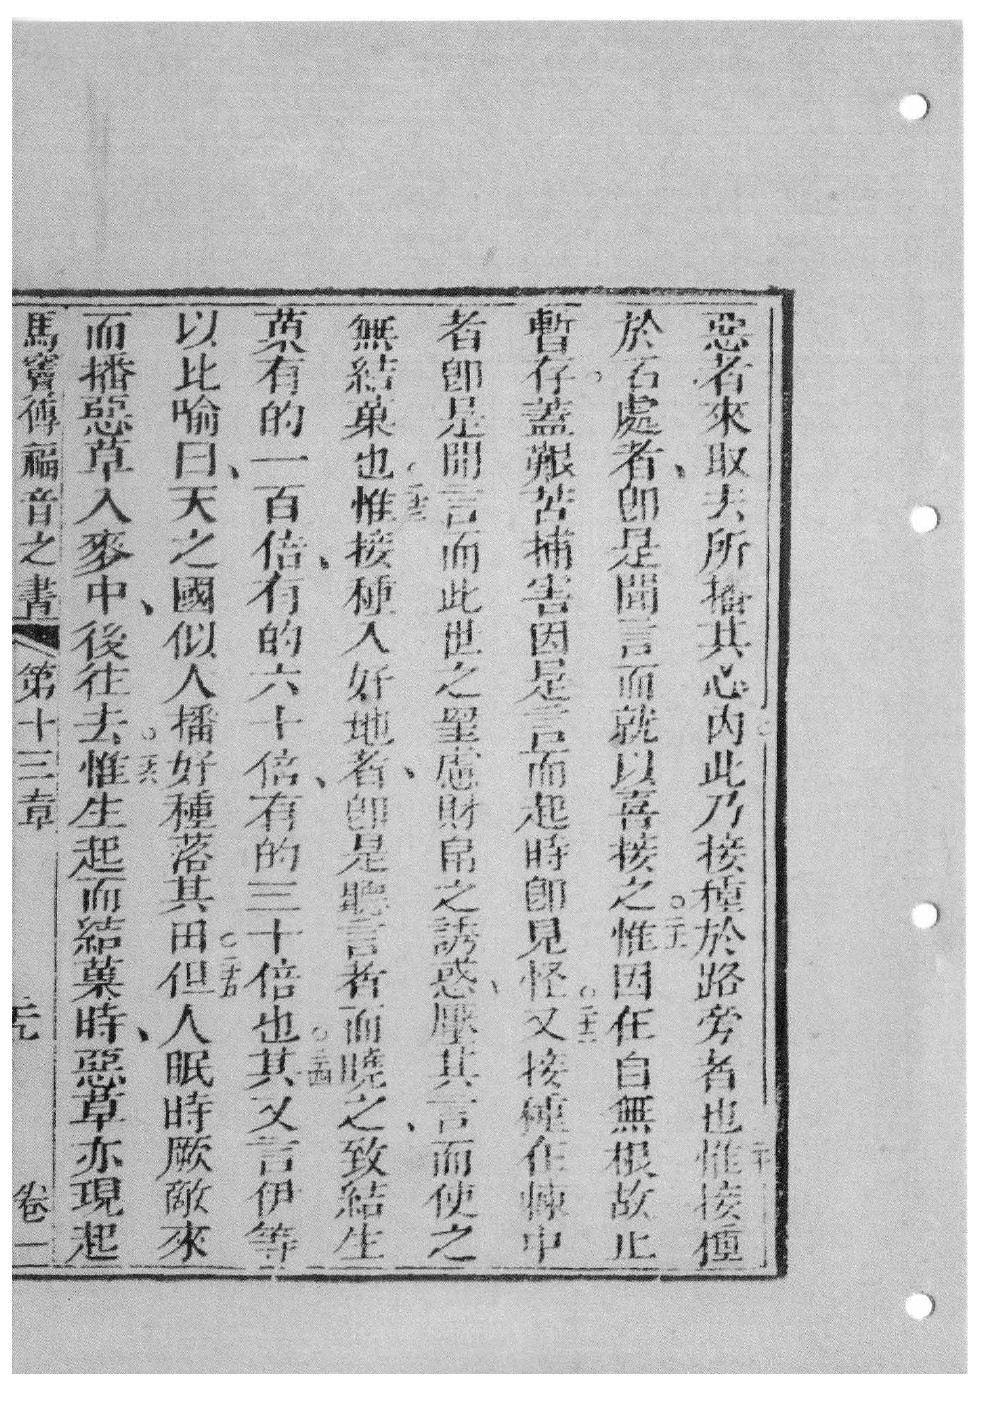 惡者來取去所播其心內此乃接種於路旁者也○二十惟接種
於石處者、卽是聞言而就以喜接之○二一惟因在自無根故止
暫存。蓋艱苦捕害因是言而起時卽見怪○二二又接種在棘中
者卽是聞言而此世之罣慮財帛之誘惑、壓其言而使之
無結菓也○二三惟接種入好地者、卽是聽言者而曉之、致結生
菓有的一百倍、有的六十倍、有的三十倍也○二四其又言伊等
以比喻曰、天之國似人播好種落其田○二五但人眠時厥敵來
而播惡草入麥中、後往去○二六惟生起而結菓時、惡草亦現起
馬竇傳福音之書 第十三章 卷一